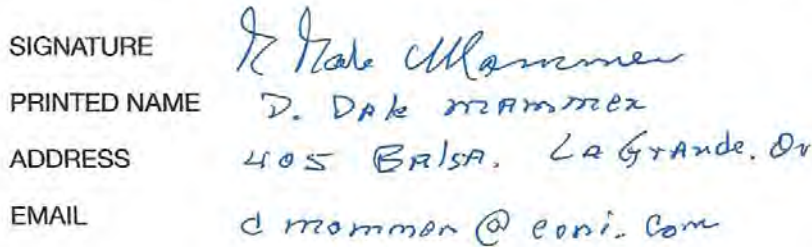 SIGNATURE D Dale Mammen
PRINTED NAME D. DAle mAmmen
ADDRESS 405 BAlsA. LA GrAnde. Or
EMAIL dmammen@eoni.com